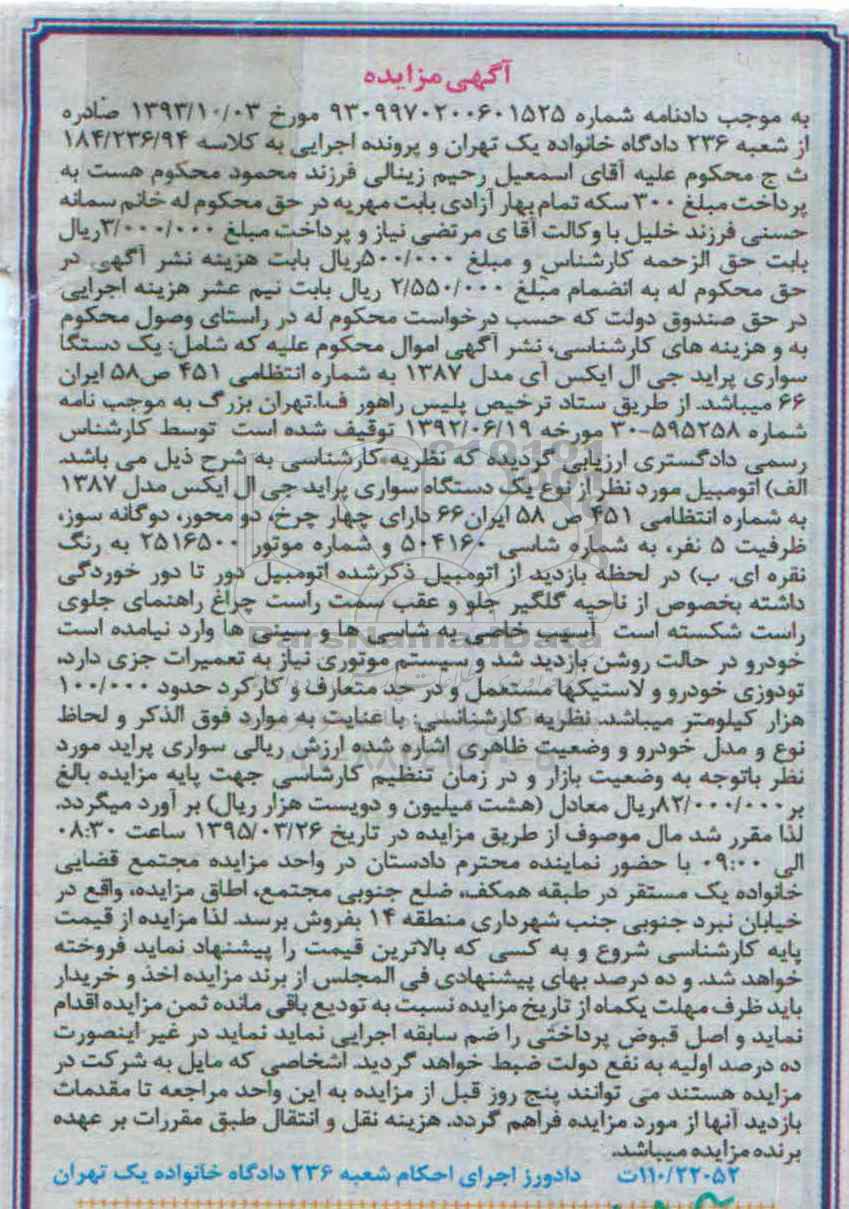 آگهی مزایده
به موجب دادنامه شماره ۹۳۰۹۹۷۰۲۰۰۶۰۱۵۲۵ مورخ ۱۳۹۳/۱۰/۰۳ صادره
از شعبه ۲۳۶ دادگاه خانواده یک تهران و پرونده اجرایی به کلاسه ۱۸۴/۲۳۶/۹۴
ث ج محکوم علیه آقای اسمعیل رحیم زینالی فرزند محمود محکوم هست به
پرداخت مبلغ ۳۰۰ سکه تمام بهار آزادی بابت مهریه در حق محکوم له خانم سمانه
حسنی فرزند خلیل با وکالت آقا ی مرتضی نیاز و پرداخت مبلغ ۳/۰۰۰/۰۰۰ریال
بابت حق الزحمه کارشناس و مبلغ ۵۰۰/۰۰۰ریال بابت هزینه نشر آگهی در
حق محکوم له به انضمام مبلغ ۲/۵۵۰/۰۰۰ ریال بابت نیم عشر هزینه اجرایی
در حق صندوق دولت که حسب درخواست محکوم له در راستای وصول محکوم
به و هزینه های کارشناسی، نشر آگهی اموال محکوم علیه که شامل: یک دستگا
سواری پراید جی ال ایکس آی مدل ۱۳۸۷ به شماره انتظامی ۴۵۱ ص۵۸ ایران
۶۶ میباشد. از طریق ستاد ترخیص پلیس راهور ف.ا.تهران بزرگ به موجب نامه
شماره ۵۹۵۲۵۸-۳۰ مورخه ۱۳۹۲/۰۶/۱۹ توقیف شده است توسط کارشناس
رسمی دادگستری ارزیابی گردیده که نظریه کارشناسی به شرح ذیل می باشد.
الف) اتومبیل مورد نظر از نوع یک دستگاه سواری پراید جی ال ایکس مدل ۱۳۸۷
به شماره انتظامی ۴۵۱ ص ۵۸ ایران۶۶ دارای چهار چرخ، دو محور، دوگانه سوز،
ظرفیت ۵ نفر، به شماره شاسی ۵۰۴۱۶۰ و شماره موتور ۲۵۱۶۵۰۰ به رنگ
نقره ای. ب) در لحظه بازدید از اتومبیل ذکرشده اتومبیل دور تا دور خوردگی
داشته بخصوص از ناحیه گلگیر جلو و عقب سمت راست چراغ راهنمای جلوی
راست شکسته است آسیب خاصی به شاسی ها و سینی ها وارد نیامده است
ParsNamadData
خودرو در حالت روشن بازدید شد و سیستم موتوری نیاز به تعمیرات جزی دارد،
تودوزی خودرو و لاستیکها مستعمل و در حد متعارف و کارکرد حدود ۱۰۰/۰۰۰
هزار کیلومتر میباشد. نظریه کارشناسی: با عنایت به موارد فوق الذکر و لحاظ
نوع و مدل خودرو و وضعیت ظاهری اشاره شده ارزش ریالی سواری پراید مورد
نظر باتوجه به وضعیت بازار و در زمان تنظیم کارشاسی جهت پایه مزایده بالغ
بر ۸۲/۰۰۰/۰۰۰ریال معادل (هشت میلیون و دویست هزار ریال) بر آورد میگردد.
لذا مقرر شد مال موصوف از طریق مزایده در تاریخ ۱۳۹۵/۰۳/۲۶ ساعت ۰۸:۳۰
الی ۰۹:۰۰ با حضور نماینده محترم دادستان در واحد مزایده مجتمع قضایی
خانواده یک مستقر در طبقه همکف، ضلع جنوبی مجتمع، اطاق مزایده، واقع در
خیابان نبرد جنوبی جنب شهرداری منطقه ۱۴ بفروش برسد. لذا مزایده از قیمت
پایه کارشناسی شروع و به کسی که بالاترین قیمت را پیشنهاد نماید فروخته
خواهد شد. و ده درصد بهای پیشنهادی فی المجلس از برند مزایده اخذ و خریدار
باید ظرف مهلت یکماه از تاریخ مزایده نسبت به تودیع باقی مانده ثمن مزایده اقدام
نماید و اصل قبوض پرداختی را ضم سابقه اجرایی نماید نماید در غیر اینصورت
ده درصد اولیه به نفع دولت ضبط خواهد گردید. اشخاصی که مایل به شرکت در
مزایده هستند می توانند پنج روز قبل از مزایده به این واحد مراجعه تا مقدمات
بازدید آنها از مورد مزایده فراهم گردد. هزینه نقل و انتقال طبق مقررات بر عهده
برنده مزایده میباشد.
۱۱۰/۲۲۰۵۲ت دادورز اجرای احکام شعبه ۲۳۶ دادگاه خانواده یک تهران